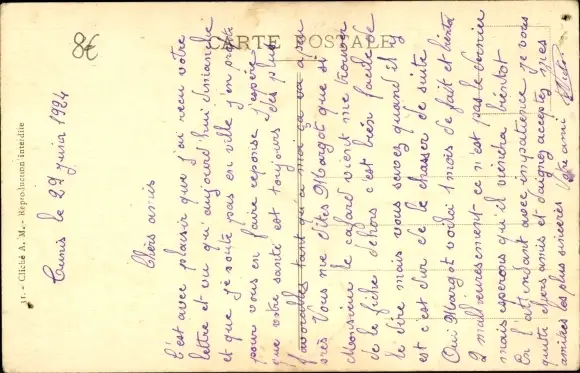 8€
CARTE POSTALE
11. - Cliché A. M. - Reproduction interdite
Tunis le 29 Juin 1924
Chers amis
C'est avec plaisir que j'ai reçu votre
lettre et vu qu'aujourd'hui dimanche
et que je soute pas en ville j'en profite
pour vous en faire réponse J'espère
que votre santé est toujours des plus
favorables tant qu'à moi ça va a peu
près Vous me dites Margot que si
Monsieur le cafard vient me trouver
de le fiche dehors c'est bien facile de
le dire mais vous savez quand il y
est c'est dur de le chasser de suite
Oui Margot voilà 1 mois de fait et bientôt
2 malheureusement ce n'est pas le dernier
mais esperons qu'il viendra bientôt
En l'attendant avec impatience je vous
quitte chers amis et daignez acceptez mes
amitiés les plus sincères Votre ami